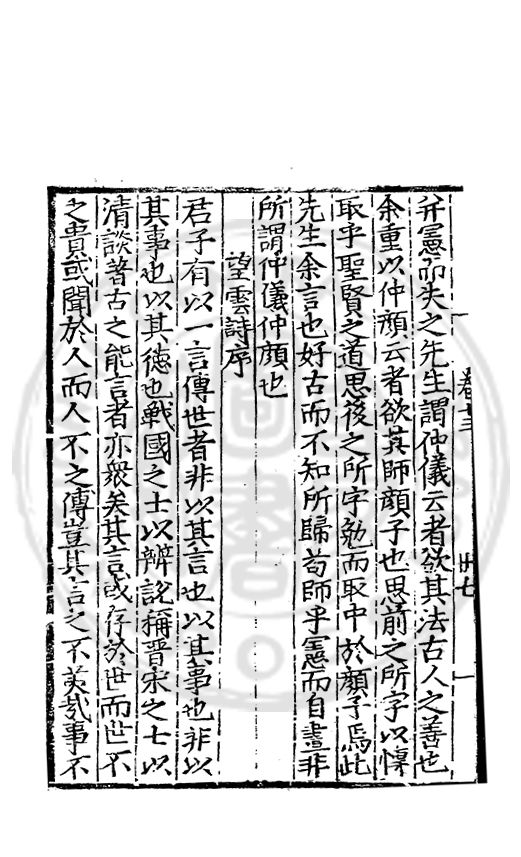 弁憲而失之先生謂仲儀云者欲其法古人之善也
余重以仲顔云者欲其師顔子也思前之所字以慎
取乎聖賢之道思後之所字勉而取中於顔子焉此
先生余言也好古而不知所歸苟師乎憲而自畫非
所謂仲儀仲顔也
望雲詩序
君子有以一言傳世者非以其言也以其事也非以
其事也以其徳也戰國之士以辨說稱晋宋之士以
清談著古之能言者亦衆矣其言或存於世而世不
之貴或聞於人而人不之傳豈其言之不美㢤事不
卷十三
卅七